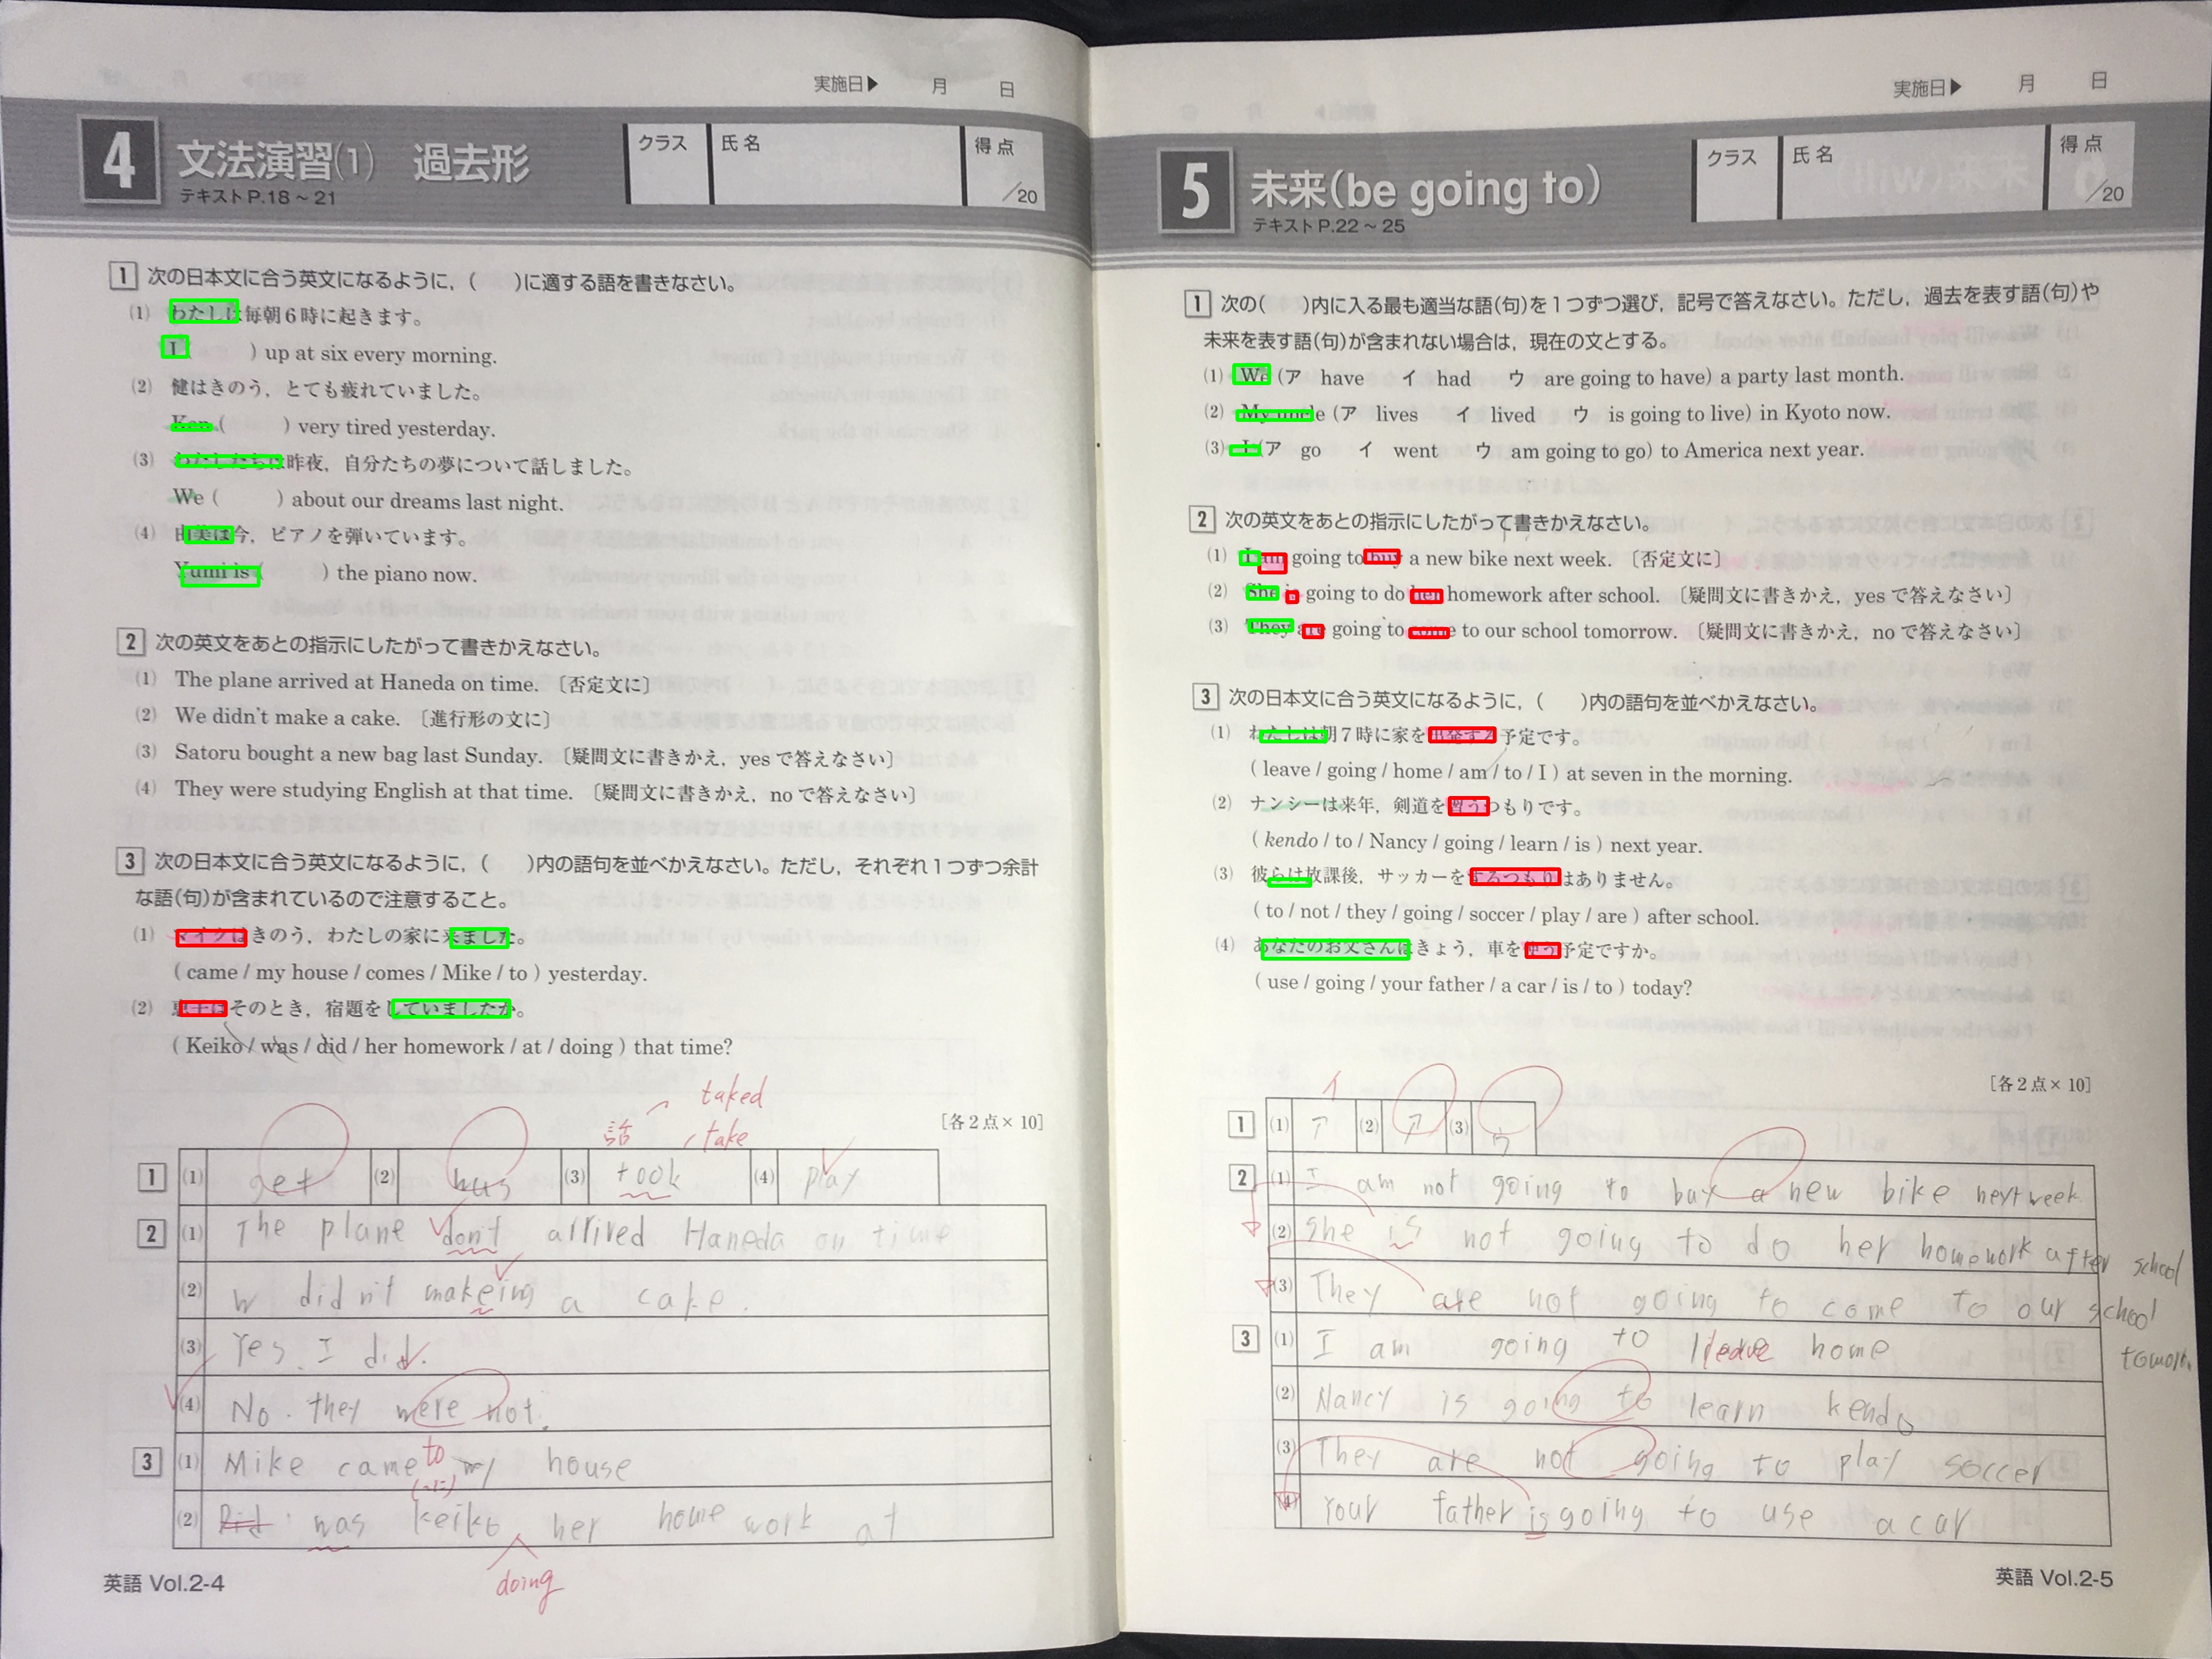 実施日▶ 月 日
4 文法演習(1) 過去形
テキストP.18～21
クラス 氏名 得点 /20
1 次の日本文に合う英文になるように，( )に適する語を書きなさい。
(1) わたしは毎朝6時に起きます。
I ( ) up at six every morning.
(2) 健はきのう，とても疲れていました。
Ken ( ) very tired yesterday.
(3) わたしたちは昨夜，自分たちの夢について話しました。
We ( ) about our dreams last night.
(4) 由美は今，ピアノを弾いています。
Yumi is ( ) the piano now.
2 次の英文をあとの指示にしたがって書きかえなさい。
(1) The plane arrived at Haneda on time. 〔否定文に〕
(2) We didn't make a cake. 〔進行形の文に〕
(3) Satoru bought a new bag last Sunday. 〔疑問文に書きかえ，yesで答えなさい〕
(4) They were studying English at that time. 〔疑問文に書きかえ，noで答えなさい〕
3 次の日本文に合う英文になるように，( )内の語句を並べかえなさい。ただし，それぞれ1つずつ余計
な語(句)が含まれているので注意すること。
(1) マイクはきのう，わたしの家に来ました。
( came / my house / comes / Mike / to ) yesterday.
(2) 恵子はそのとき，宿題をしていましたか。
( Keiko / was / did / her homework / at / doing ) that time?
taked
話 take
[各2点×10]
1 (1) get (2) was (3) took (4) play
2 (1) The plane don't arrived Haneda on time
(2) w didn't makeing a cake.
(3) Yes. I did.
(4) No. they were not.
3 (1) Mike came to my house
(2) Did was keiko her home work at
doing
英語 Vol.2-4
実施日▶ 月 日
5 未来(be going to)
テキストP.22～25
クラス 氏名 得点 /20
1 次の( )内に入る最も適当な語(句)を1つずつ選び，記号で答えなさい。ただし，過去を表す語(句)や
未来を表す語(句)が含まれない場合は，現在の文とする。
(1) We (ア have イ had ウ are going to have) a party last month.
(2) My uncle (ア lives イ lived ウ is going to live) in Kyoto now.
(3) I (ア go イ went ウ am going to go) to America next year.
2 次の英文をあとの指示にしたがって書きかえなさい。
(1) I am going to buy a new bike next week. 〔否定文に〕
(2) She is going to do her homework after school. 〔疑問文に書きかえ，yesで答えなさい〕
(3) They are going to come to our school tomorrow. 〔疑問文に書きかえ，noで答えなさい〕
3 次の日本文に合う英文になるように，( )内の語句を並べかえなさい。
(1) わたしは朝7時に家を出発する予定です。
( leave / going / home / am / to / I ) at seven in the morning.
(2) ナンシーは来年，剣道を習うつもりです。
( kendo / to / Nancy / going / learn / is ) next year.
(3) 彼らは放課後，サッカーをするつもりはありません。
( to / not / they / going / soccer / play / are ) after school.
(4) あなたのお父さんはきょう，車を使う予定ですか。
( use / going / your father / a car / is / to ) today?
[各2点×10]
イ
1 (1) ア (2) ア (3) ウ
2 (1) I am not going to buy a new bike next week.
(2) She is not going to do her homework after school
(3) They are not going to come to our school
tomorr.
3 (1) I am going to leave home
(2) Nancy is going to learn kendo
(3) They are not going to play soccer
(4) Your father is going to use a car
英語 Vol.2-5